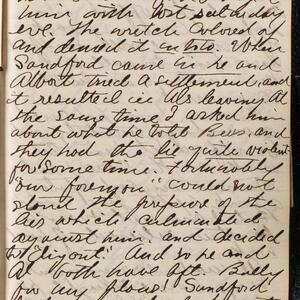 him with last Saturday
eve. The wretch colored up
and denied it in toto. When
Sandford came in he and
Albert tried a settlement, and
it resulted in Al's leaving. At
the same time I asked him
about what he told Bees, and
they had the lie quite violent
for some time. Fortunately
our foreyou" could not
stand the pressure of the
lies which culminated
against him, and decided
to "digout" And so he and
Al both have left. Bully
for my place! Sandford